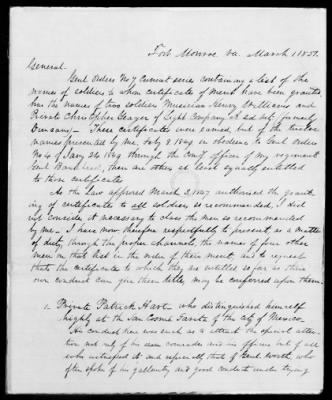 Fort Monroe Va. March 1 1851.
General
Genl Orders No 7 Current series containing a list of the
names of soldiers to whom certificates of merit have been granted
has the names of two soldiers Musician Henry Williams and
Private Christopher Geayer of Light Company A 2d Art. (formerly
Duncans) - These certificates were earned, but of the twelve
names presented by me, July 8 1849 in obedience to Genl Orders
No 4 of Jany 24 1849 through the comg officer of my regiment
Genl there are others at least equally entitled
to those certificates
As the Law approved March 3, 1847 authorised the grant
ing of certificates to all soldiers so recommended, I did
not consider it necessary to class the men so recommended
by me. I have now therefore respectfully to present as a matter
of duty, through the proper channels, the names of four other
men on that list in the order of their merit, and to request
that the certificates to which they are entitled so far as their
own conduct can give them title, may be conferred upon them.
1. Private Patrick Hart, who distinguished himself
highly at the San Cosme Garita of the City of Mexico.
His conduct here was such as to attract the special atten-
tion not only of his own comrades and his officers but of all
who witnessed it and especially that of Genl. Worth, who
often spoke of his gallantry and good conduct under trying